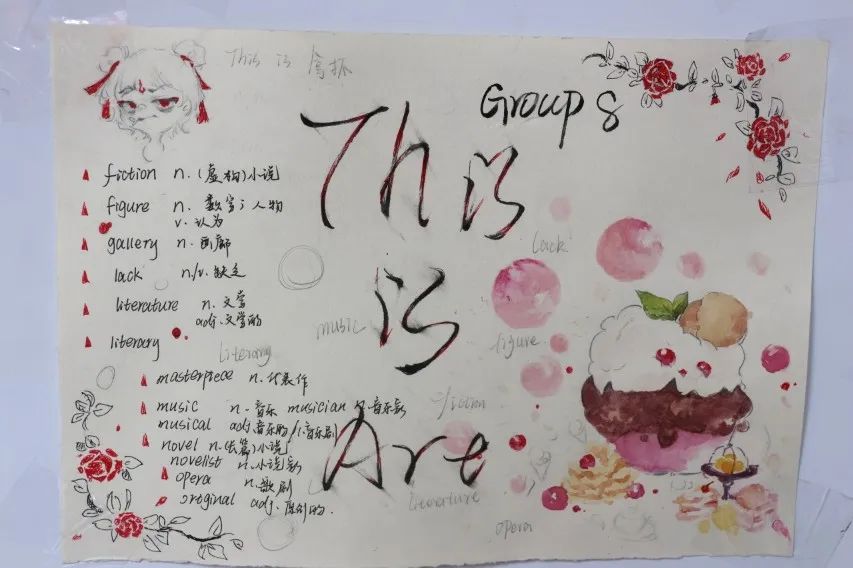 This is
Group 8
This
is
Art
fiction n. (虚构)小说
figure n. 数字；人物
v. 认为
gallery n. 画廊
lack n./v. 缺乏
literature n. 文学
adj. 文学的
literary
literary
masterpiece n. 代表作
music n. 音乐 musician n. 音乐家
musical adj. 音乐的/n.音乐剧
novel n. (长篇)小说
novelist n. 小说家
opera n. 歌剧
original adj. 原创的.
lack
music
figure
fiction
literature
opera